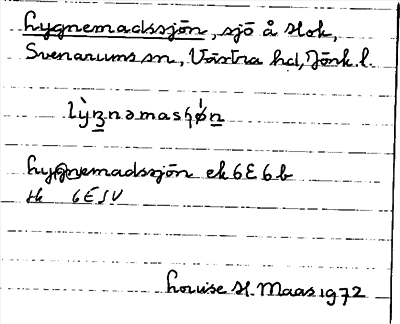 Lygnemadssjön, sjö å Hok,
Svenarums sn, Västra hd, Jönk. l.
Lygnemadssjön ek 6E6b
tk 6E SV
Louise H. Maas 1972